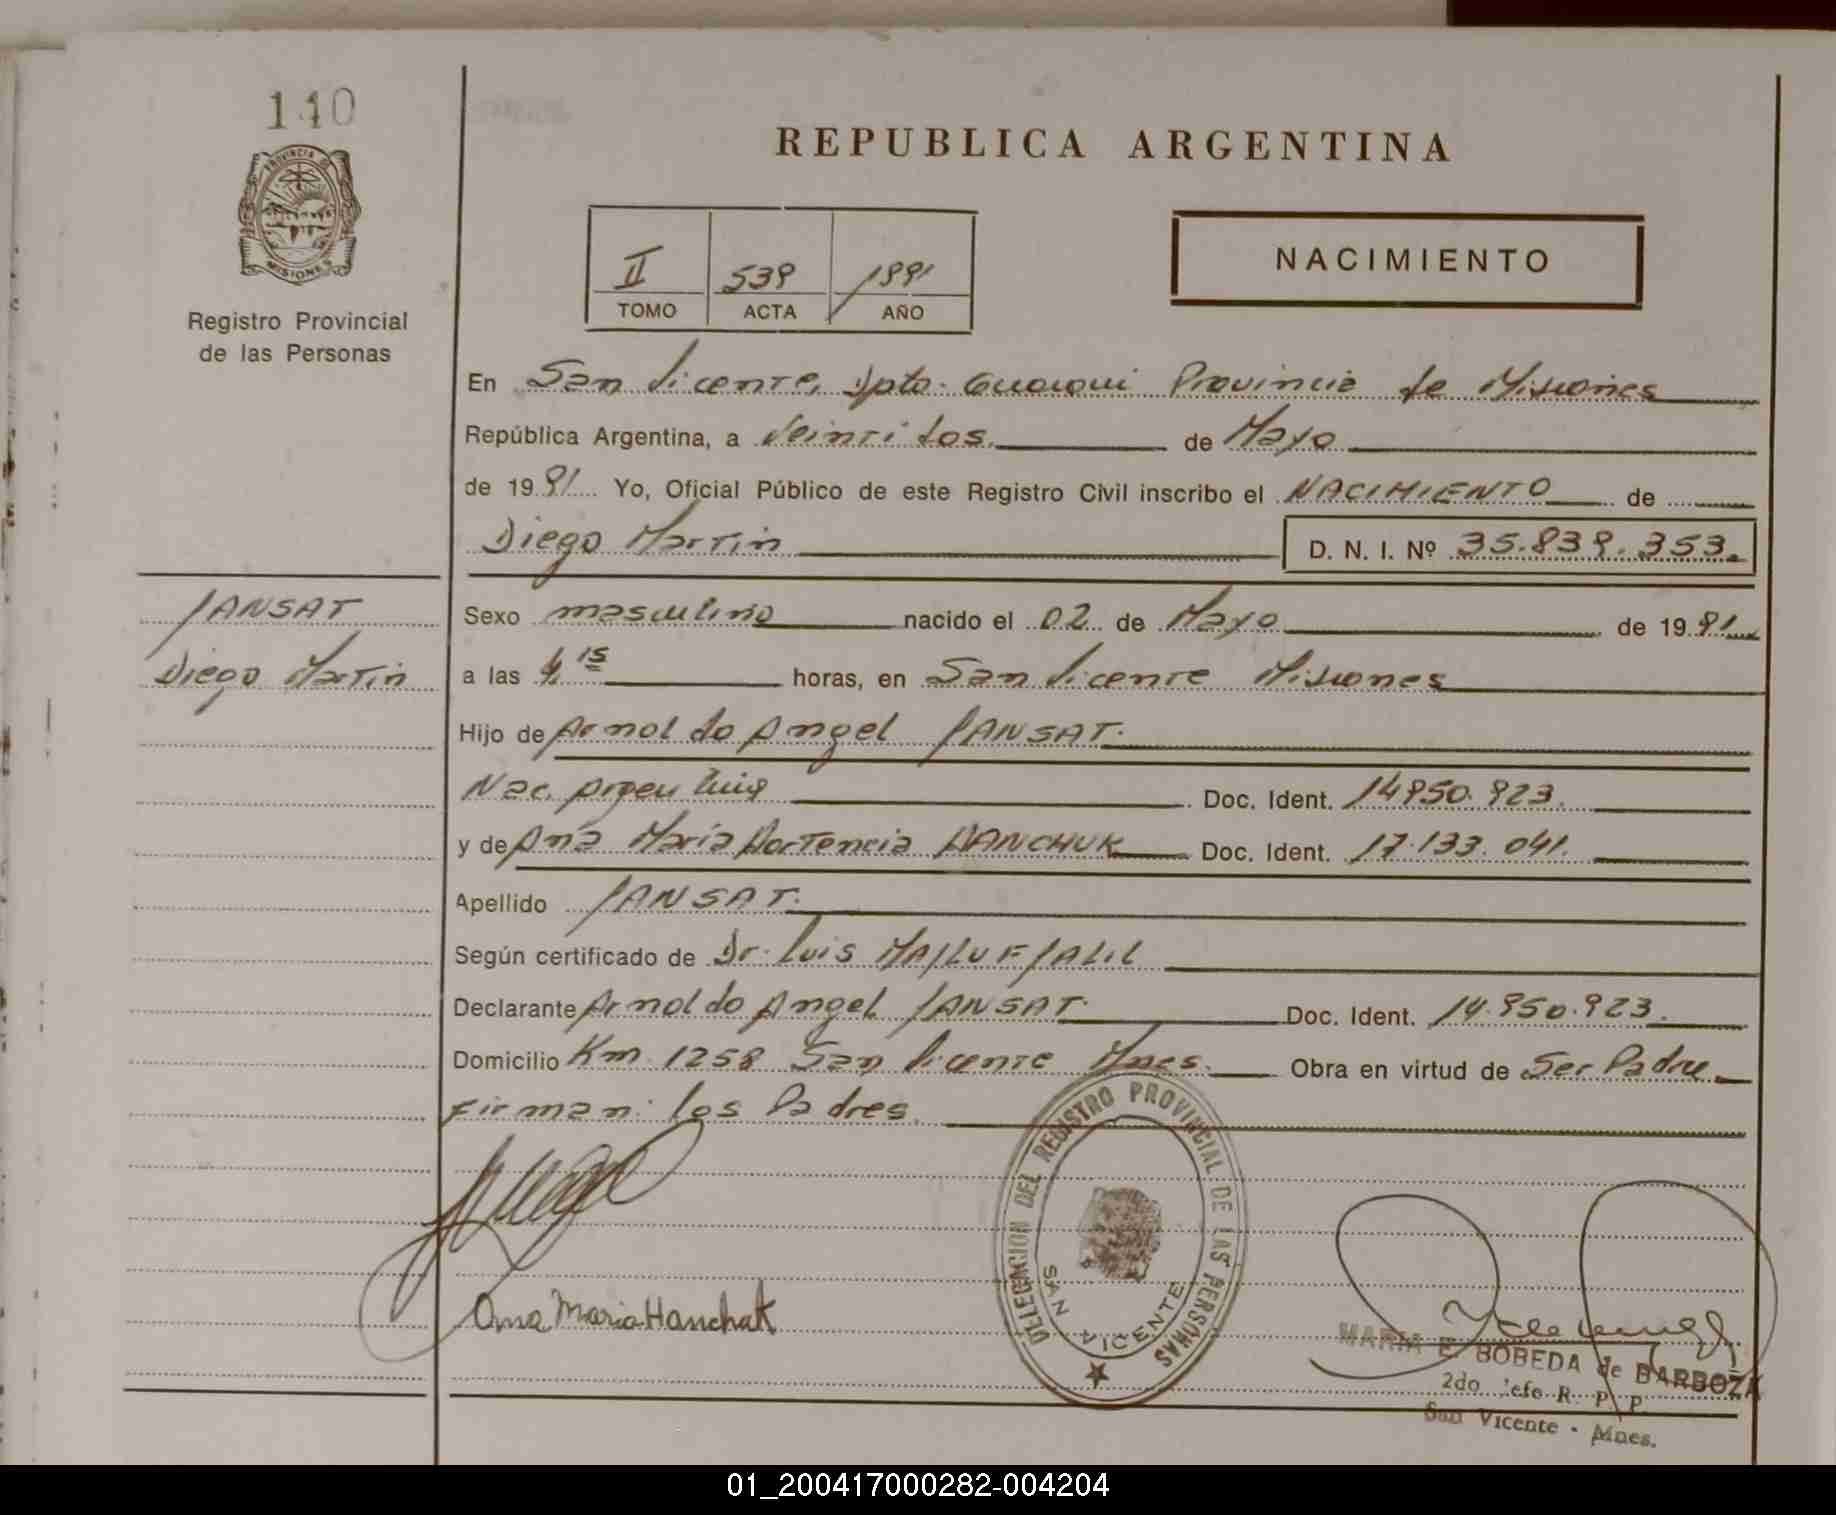 140
PROVINCIA DE
MISIONES
Registro Provincial
de las Personas
REPUBLICA ARGENTINA
II 539 1991
TOMO ACTA AÑO
NACIMIENTO
En San Vicente, Dpto. Guaraní Provincia de Misiones
República Argentina, a Veintidos de Mayo
de 1991 Yo, Oficial Público de este Registro Civil inscribo el NACIMIENTO de
Diego Martin D. N. I. Nº 35.839.353.
JANSAT
Diego Martin
Sexo masculino nacido el 02 de Mayo de 1991
a las 4,15 horas, en San Vicente Misiones
Hijo de Arnoldo Angel JANSAT.
Nac. argentina Doc. Ident. 14950.923.
y de Ana María Hortencia HANCHUK Doc. Ident. 17.133.041.
Apellido JANSAT.
Según certificado de Dr. Luis MAJLUF JALIL
Declarante Arnoldo Angel JANSAT. Doc. Ident. 14.950.923.
Domicilio Km 1258 San Vicente Mnes. Obra en virtud de Ser Padre
Firman: los Padres.
DELEGACION DEL REGISTRO PROVINCIAL DE LAS PERSONAS
SAN VICENTE
Ana Maria Hanchuk
MARIA E. BOBEDA de BARBOZA
2do Jefe R. P. P.
San Vicente - Mnes.
01_200417000282-004204